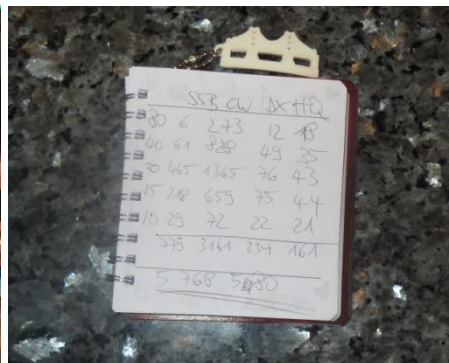 SSB CW DX HQ
80 6 273 12 18
40 61 828 49 35
20 465 1365 76 43
15 218 659 75 44
10 29 72 22 21
779 3161 234 161
5 768